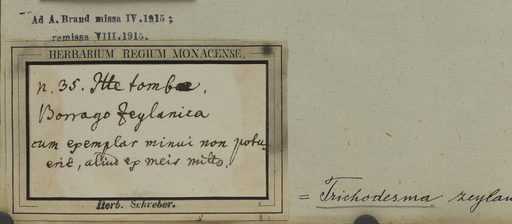 Ad A. Brand missa IV. 1915 ;
remissa VIII. 1915.
HERBARIUM REGIUM MONACENSE.
n. 35. Itte tombæ.
Borrago Zeylanica
cum exemplar minui non potu
erit, aliud ex meis mitto.
Herb. Schreber.
= Trichodesma zeylan